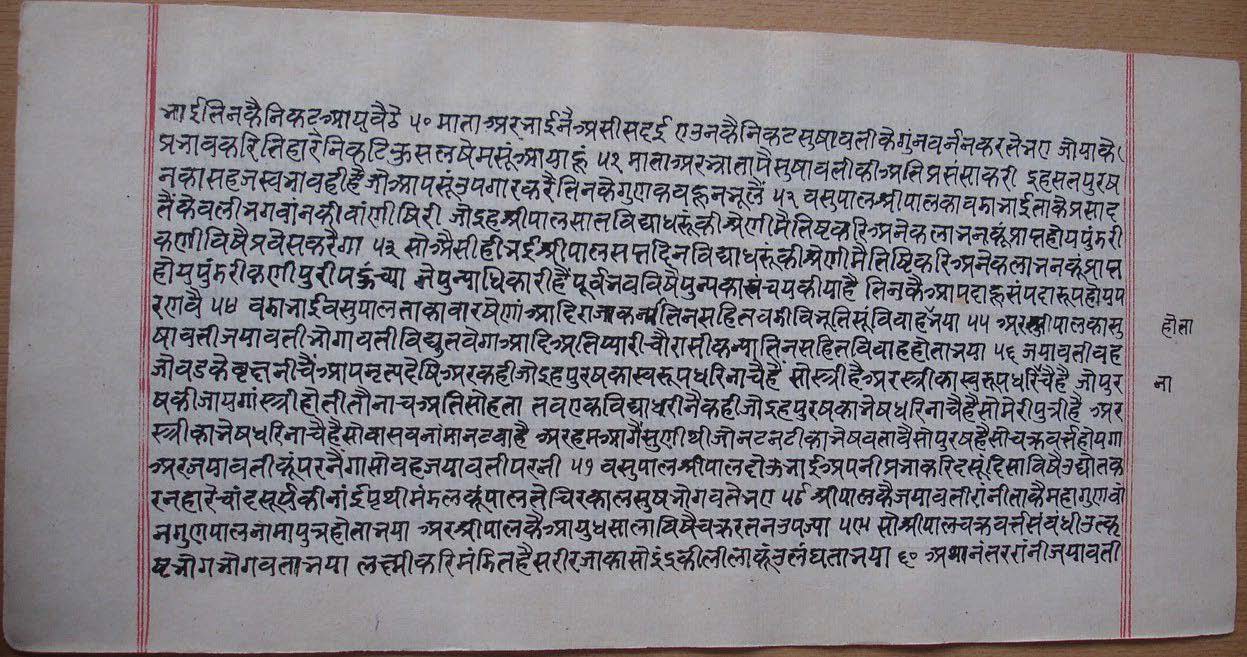 भाई तिनकै निकट आय बैठे ५० माता अर भाईनै असीस दई ए उनकै निकट सुषावती के गुन वर्नन करते भए जो या के
प्रभाव करि तिहारै निकटि कुसल षेमसूं आया हूं ५१ माता अर भ्राता पै सुषावती की अति प्रसंसा करी इह सतपुरष
नका सहज स्वभाव ही है जो आपसूं उपगार करै तिनके गुण कबहू न भूलैं ५२ वसुपाल श्रीपाल का बडा भाई ताके प्रसाद
तैं केवली भगवांन की वांणी षिरी जो इह श्रीपाल सात विद्याधरूं की श्रेणी मै तिष्ट करि अनेक लाभनकूं प्राप्त होय पुंडरी
कणी विषै प्रवेस करैगा ५३ सो अैसी ही भई श्रीपाल सप्त दिन विद्याधरूं की श्रेणी मै तिष्टि करि अनेक लाभनकूं प्राप्त
होय पुंडरीकणी पुरी पहूंच्या जे पुन्याधिकारी हैं पूर्व भव विषै पुन्य का संचय कीया है तिनकै आपदा हू संपदा रूप होय प
रणवै ५४ बडा भाई वसुपाल ताका वारषेणां आदि राजकन्या तिन सहित बडी विभूतिसूं विवाह भया ५५ अर श्रीपाल का सु
षावती जयावती भोगावती विद्युतवेगा आदि अति प्यारी चौरासी कन्या तिन सहित विवाह होता भया ५६ जयावती वह
जो वड के वृक्ष नीचैं आप नृत्य देषि अर कही जो इह पुरष का स्वरूप धरि नाचै है सो स्त्री है अर स्त्री का स्वरूप धरि नाचै है जो पुर
ष की जायगां स्त्री होती तौ नाच अति सोहता तब एक विद्याधरी नै कही जो इह पुरष का भेष धरि नाचै है सो मेरी पुत्री है अर
स्त्री का भेष धरि नाचै है सो वासव नांमा नटवा है अर हम आगैं सुणी थी जो नट नटी का भेष बतावै सो पुरष है सो चक्रवर्त होयगा
अर जयावती कूं परनैगा सो वह जयावती परनी ५७ वसुपाल श्रीपाल दोऊ भाई अपनी प्रभा करि दसूं दिसा विषै उद्योत क
रनहारे चांद सूर्य की नांई पृथी मंडल कूं पालते चिरकाल सुष भोगवते भए ५८ श्रीपाल कै जयावती रांनी ताकै महा गुणवां
न गुणपाल नांमा पुत्र होता भया अर श्रीपाल कै आयुधसाला विषै चक्र रतन उपज्या ५९ सो श्रीपाल चक्रवर्त संबंधी उत्कृ
ष्ट भोग भोगवता भया लक्ष्मी करि मंडित है सरीर जाका सो इंद्र की लीला कूं उलंघता भया ६० अथानंतर रांनी जयावती
होता
ना